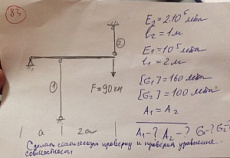 83
E₂ = 2·10⁵ мпа
l₂ = 1м
E₁ = 10⁵ мпа
l₁ = 2м
[G₁] = 160 мпа
[G₂] = 100 мпа
A₁ = A₂
A₁-? A₂-? G₁-? G₂-?
①
②
F=90кн
a
2a
Сделать статическую проверку и проверить уравнение
совместности